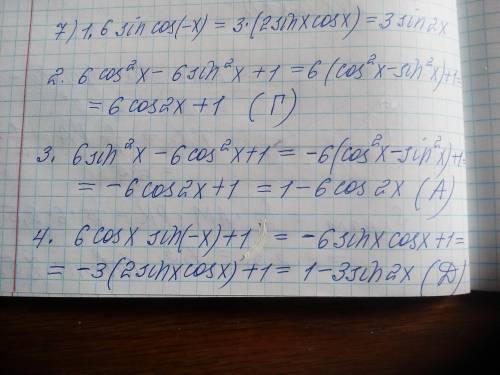 7) 1. 6 sin cos(-x) = 3·(2sinxcosx) = 3 sin2x
2. 6 cos²x - 6sin²x + 1 = 6(cos²x-sin²x)+1=
= 6 cos2x + 1 (Г)
3. 6sin²x - 6cos²x+1 = -6(cos²x-sin²x)+1=
= -6cos2x+1 = 1-6cos2x (А)
4. 6cosx sin(-x)+1 = -6sinxcosx+1=
= -3(2sinxcosx)+1= 1-3sin2x (Д)